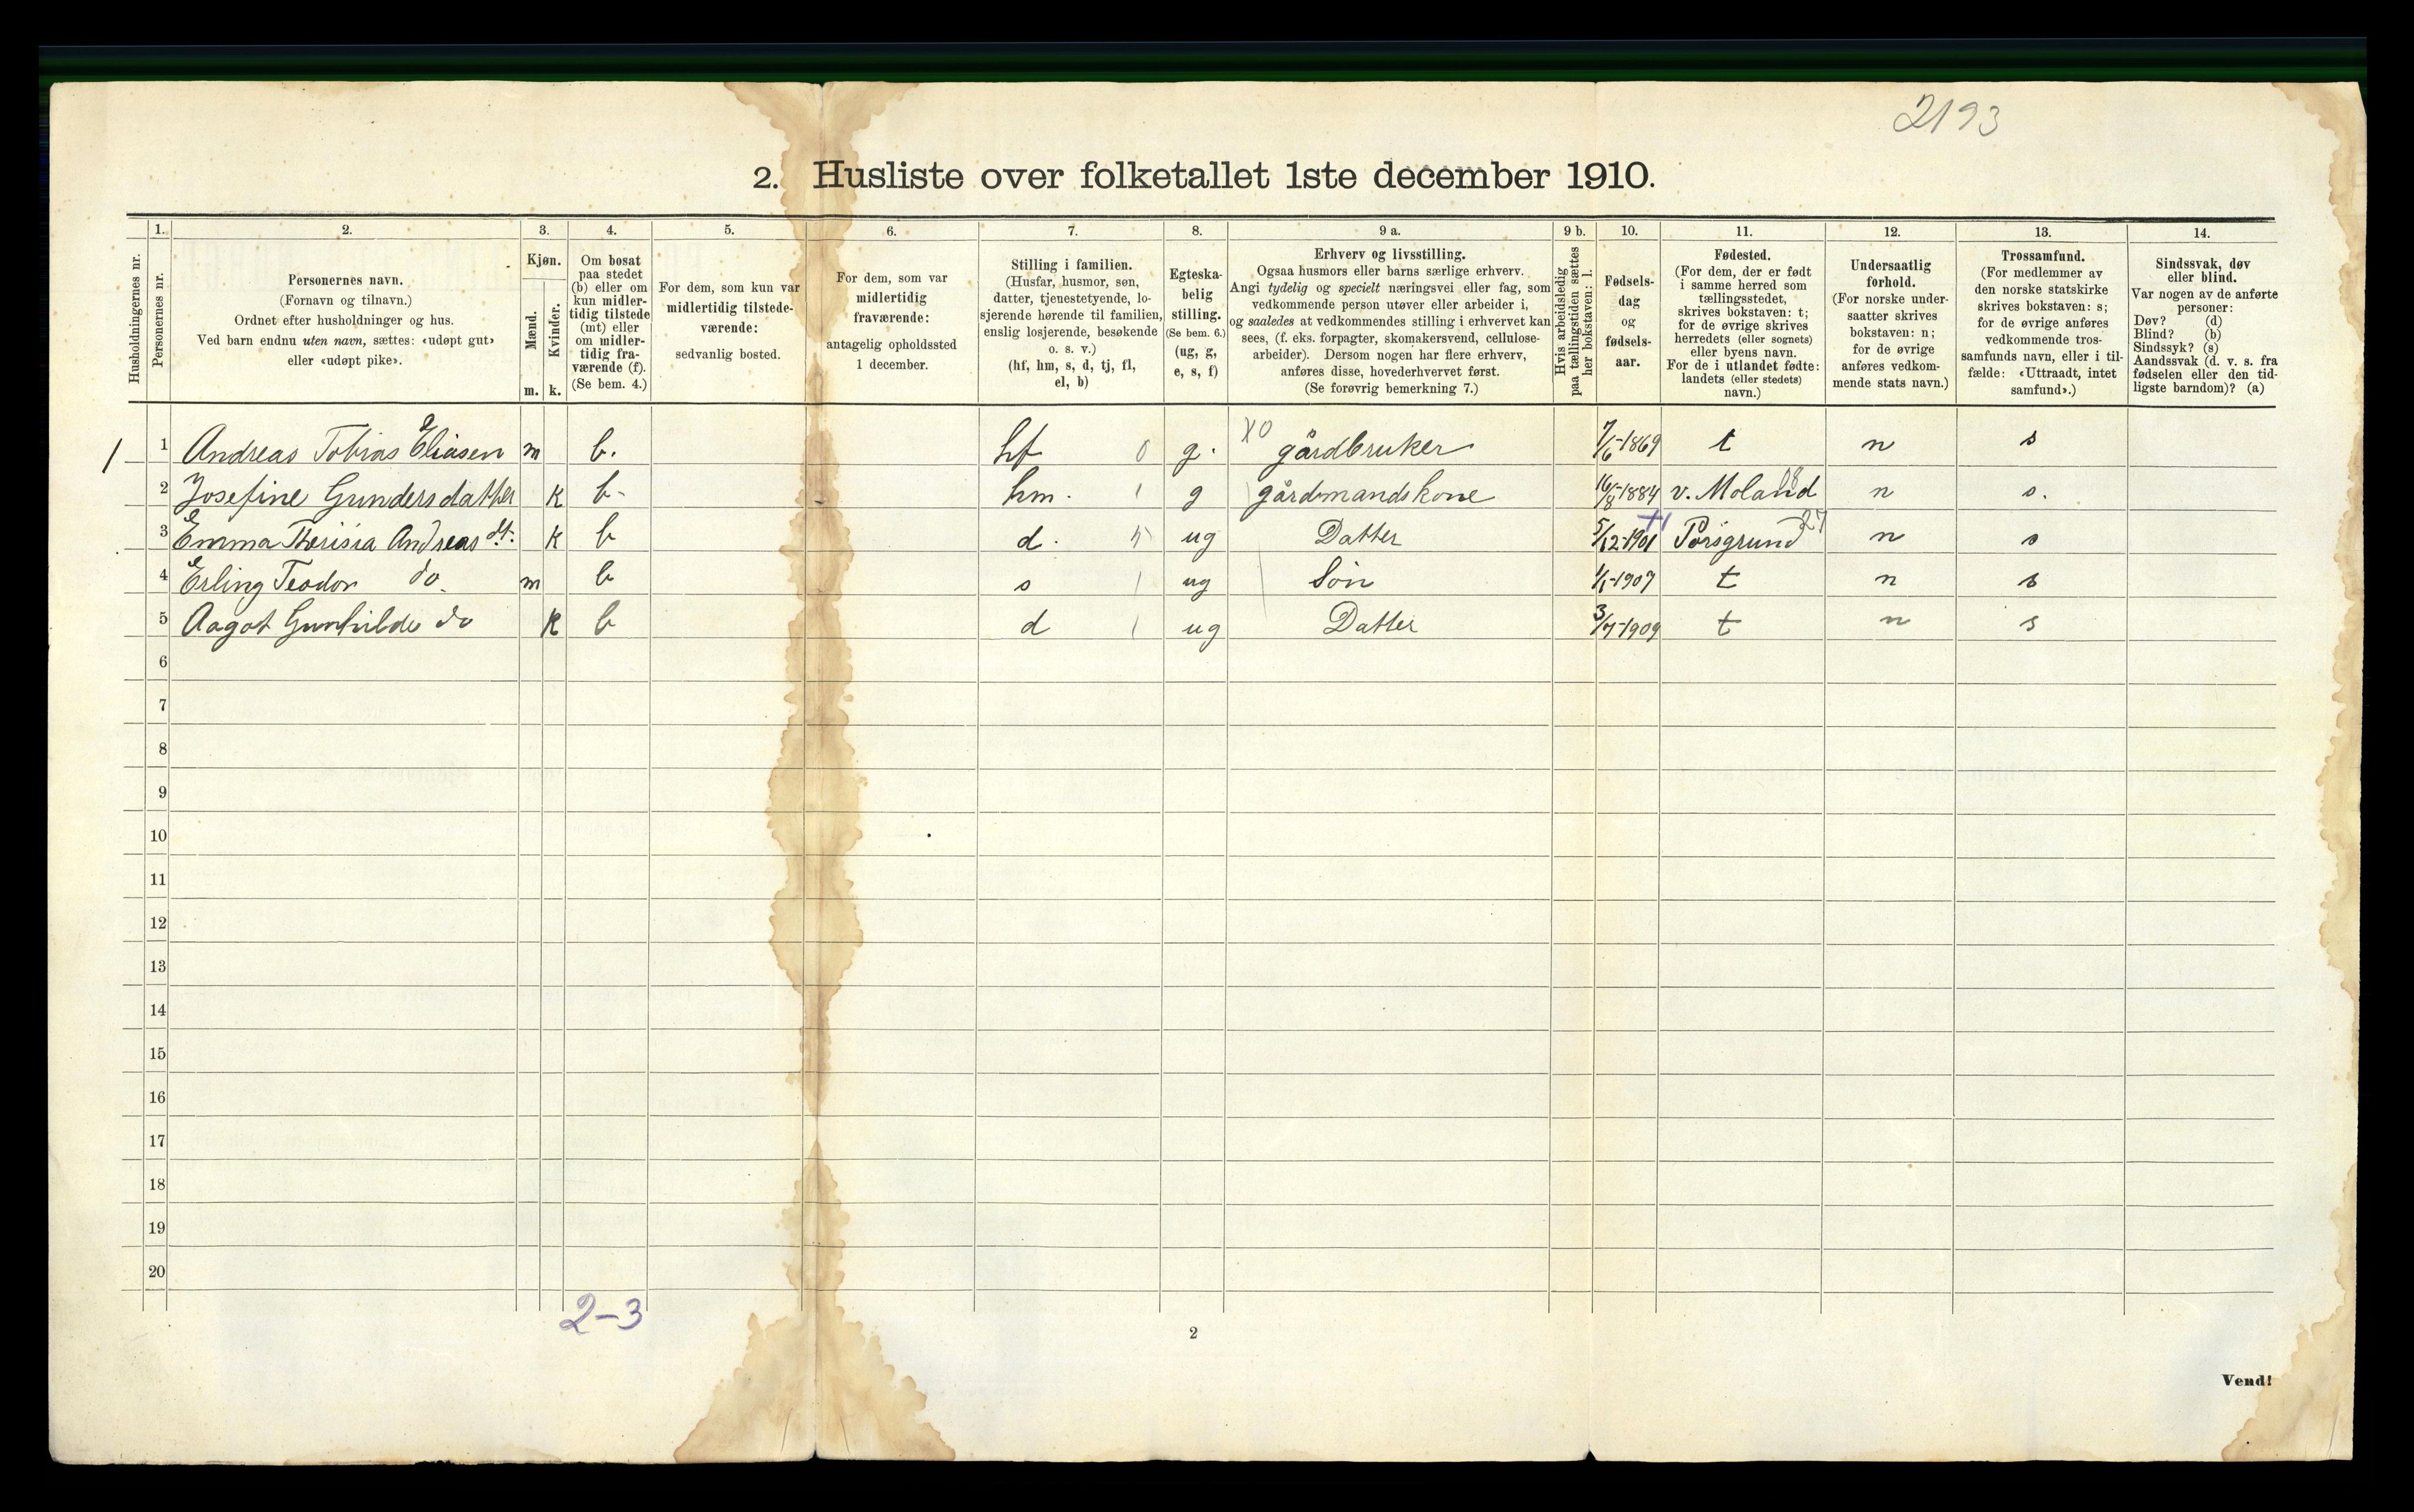 2193
2. Husliste over folketallet 1ste december 1910.
Husholdningernes nr.
1. Personernes nr.
2. Personernes navn. (Fornavn og tilnavn.) Ordnet efter husholdninger og hus. Ved barn endnu uten navn, sættes: «udøpt gut» eller «udøpt pike».
3. Kjøn. Mænd. m. Kvinder. k.
4. Om bosat paa stedet (b) eller om kun midlertidig tilstede (mt) eller om midlertidig fraværende (f). (Se bem. 4.)
5. For dem, som kun var midlertidig tilstedeværende: sedvanlig bosted.
6. For dem, som var midlertidig fraværende: antagelig opholdssted 1 december.
7. Stilling i familien. (Husfar, husmor, søn, datter, tjenestetyende, losjerende hørende til familien, enslig losjerende, besøkende o. s. v.) (hf, hm, s, d, tj, fl, el, b)
8. Egteskabelig stilling. (Se bem. 6.) (ug, g, e, s, f)
9 a. Erhverv og livsstilling. Ogsaa husmors eller barns særlige erhverv. Angi tydelig og specielt næringsvei eller fag, som vedkommende person utøver eller arbeider i, og saaledes at vedkommendes stilling i erhvervet kan sees, (f. eks. forpagter, skomakersvend, cellulosearbeider). Dersom nogen har flere erhverv, anføres disse, hovederhvervet først. (Se forøvrig bemerkning 7.)
9 b. Hvis arbeidsledig paa tællingstiden sættes her bokstaven: l.
10. Fødselsdag og fødselsaar.
11. Fødested. (For dem, der er født i samme herred som tællingsstedet, skrives bokstaven: t; for de øvrige skrives herredets (eller sognets) eller byens navn. For de i utlandet fødte: landets (eller stedets) navn.)
12. Undersaatlig forhold. (For norske undersaatter skrives bokstaven: n; for de øvrige anføres vedkommende stats navn.)
13. Trossamfund. (For medlemmer av den norske statskirke skrives bokstaven: s; for de øvrige anføres vedkommende trossamfunds navn, eller i tilfælde: «Uttraadt, intet samfund».)
14. Sindssvak, døv eller blind. Var nogen av de anførte personer: Døv? (d) Blind? (b) Sindssyk? (s) Aandssvak (d. v. s. fra fødselen eller den tidligste barndom)? (a)
1 1 Andreas Tobias Eliasen m b. hf 0 g. X0 gårdbruker 7/6-1869 t n s
2 Josefine Gundersdatter k b- hm. 1 g gårdmandskone 16/8-1884 v. Moland 08 n s.
3 Emma Therisia Andreas dt. k b d. 5 ug Datter 5/12-1901 Porsgrund 27 n s
4 Erling Teodor do. m b s 1 ug Søn 1/1-1907 t n s
5 Aagot Gunhilde do k b d 1 ug Datter 3/7-1909 t n s
6
7
8
9
10
11
12
13
14
15
16
17
18
19
20
2-3
2
Vend!